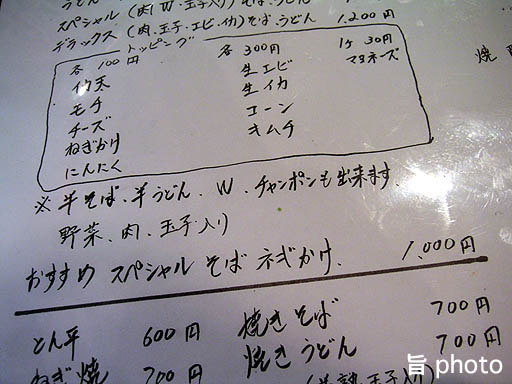 スペシャル(肉W.玉子入り)そば.うどん
デラックス(肉.玉子.エビ.イカ)そば.うどん 1,200円
トッピング
各100円 各300円 1ヶ30円
イカ天 生エビ マヨネーズ
モチ 生イカ
チーズ コーン
ねぎかけ キムチ
にんにく
※半そば.半うどん.W.チャンポンも出来ます.
野菜.肉.玉子入り
おすすめ スペシャルそばネギかけ. 1,000円
とん平 600円 焼きそば 700円
ねぎ焼 700円 焼きうどん 700円
焼
旨 photo